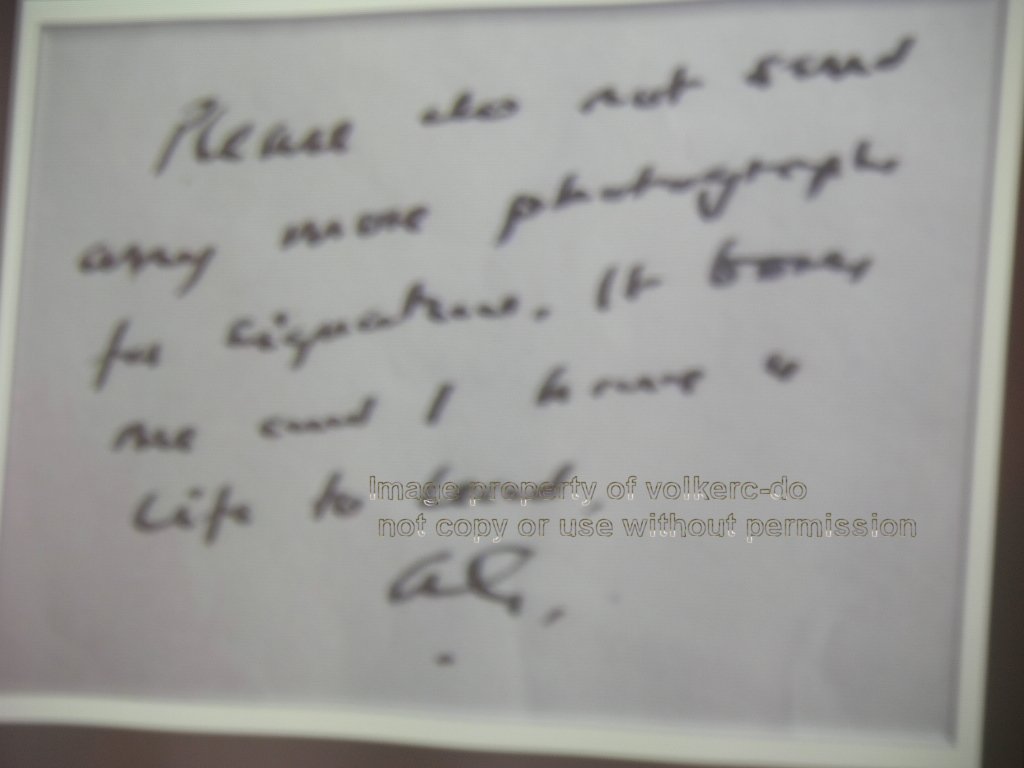 Please do not send
any more photographs
for signature. It bores
me and I have a
life to lead.
AG.
Image property of volkerc-do
not copy or use without permission